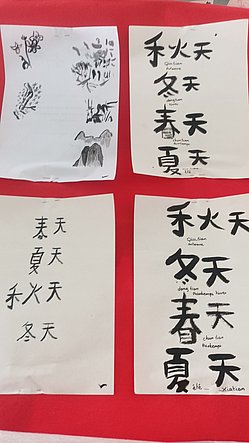 秋天
Qiu tian
automne
冬天
dong tian
hiver
春天
chun tian
printemps
夏天
été
春天
夏天
秋天
冬天
秋天
Qiu tian
automne
冬天
dong tian
Printemps hiver
春天
chun tian
Printemps
夏天
été
Xiatian